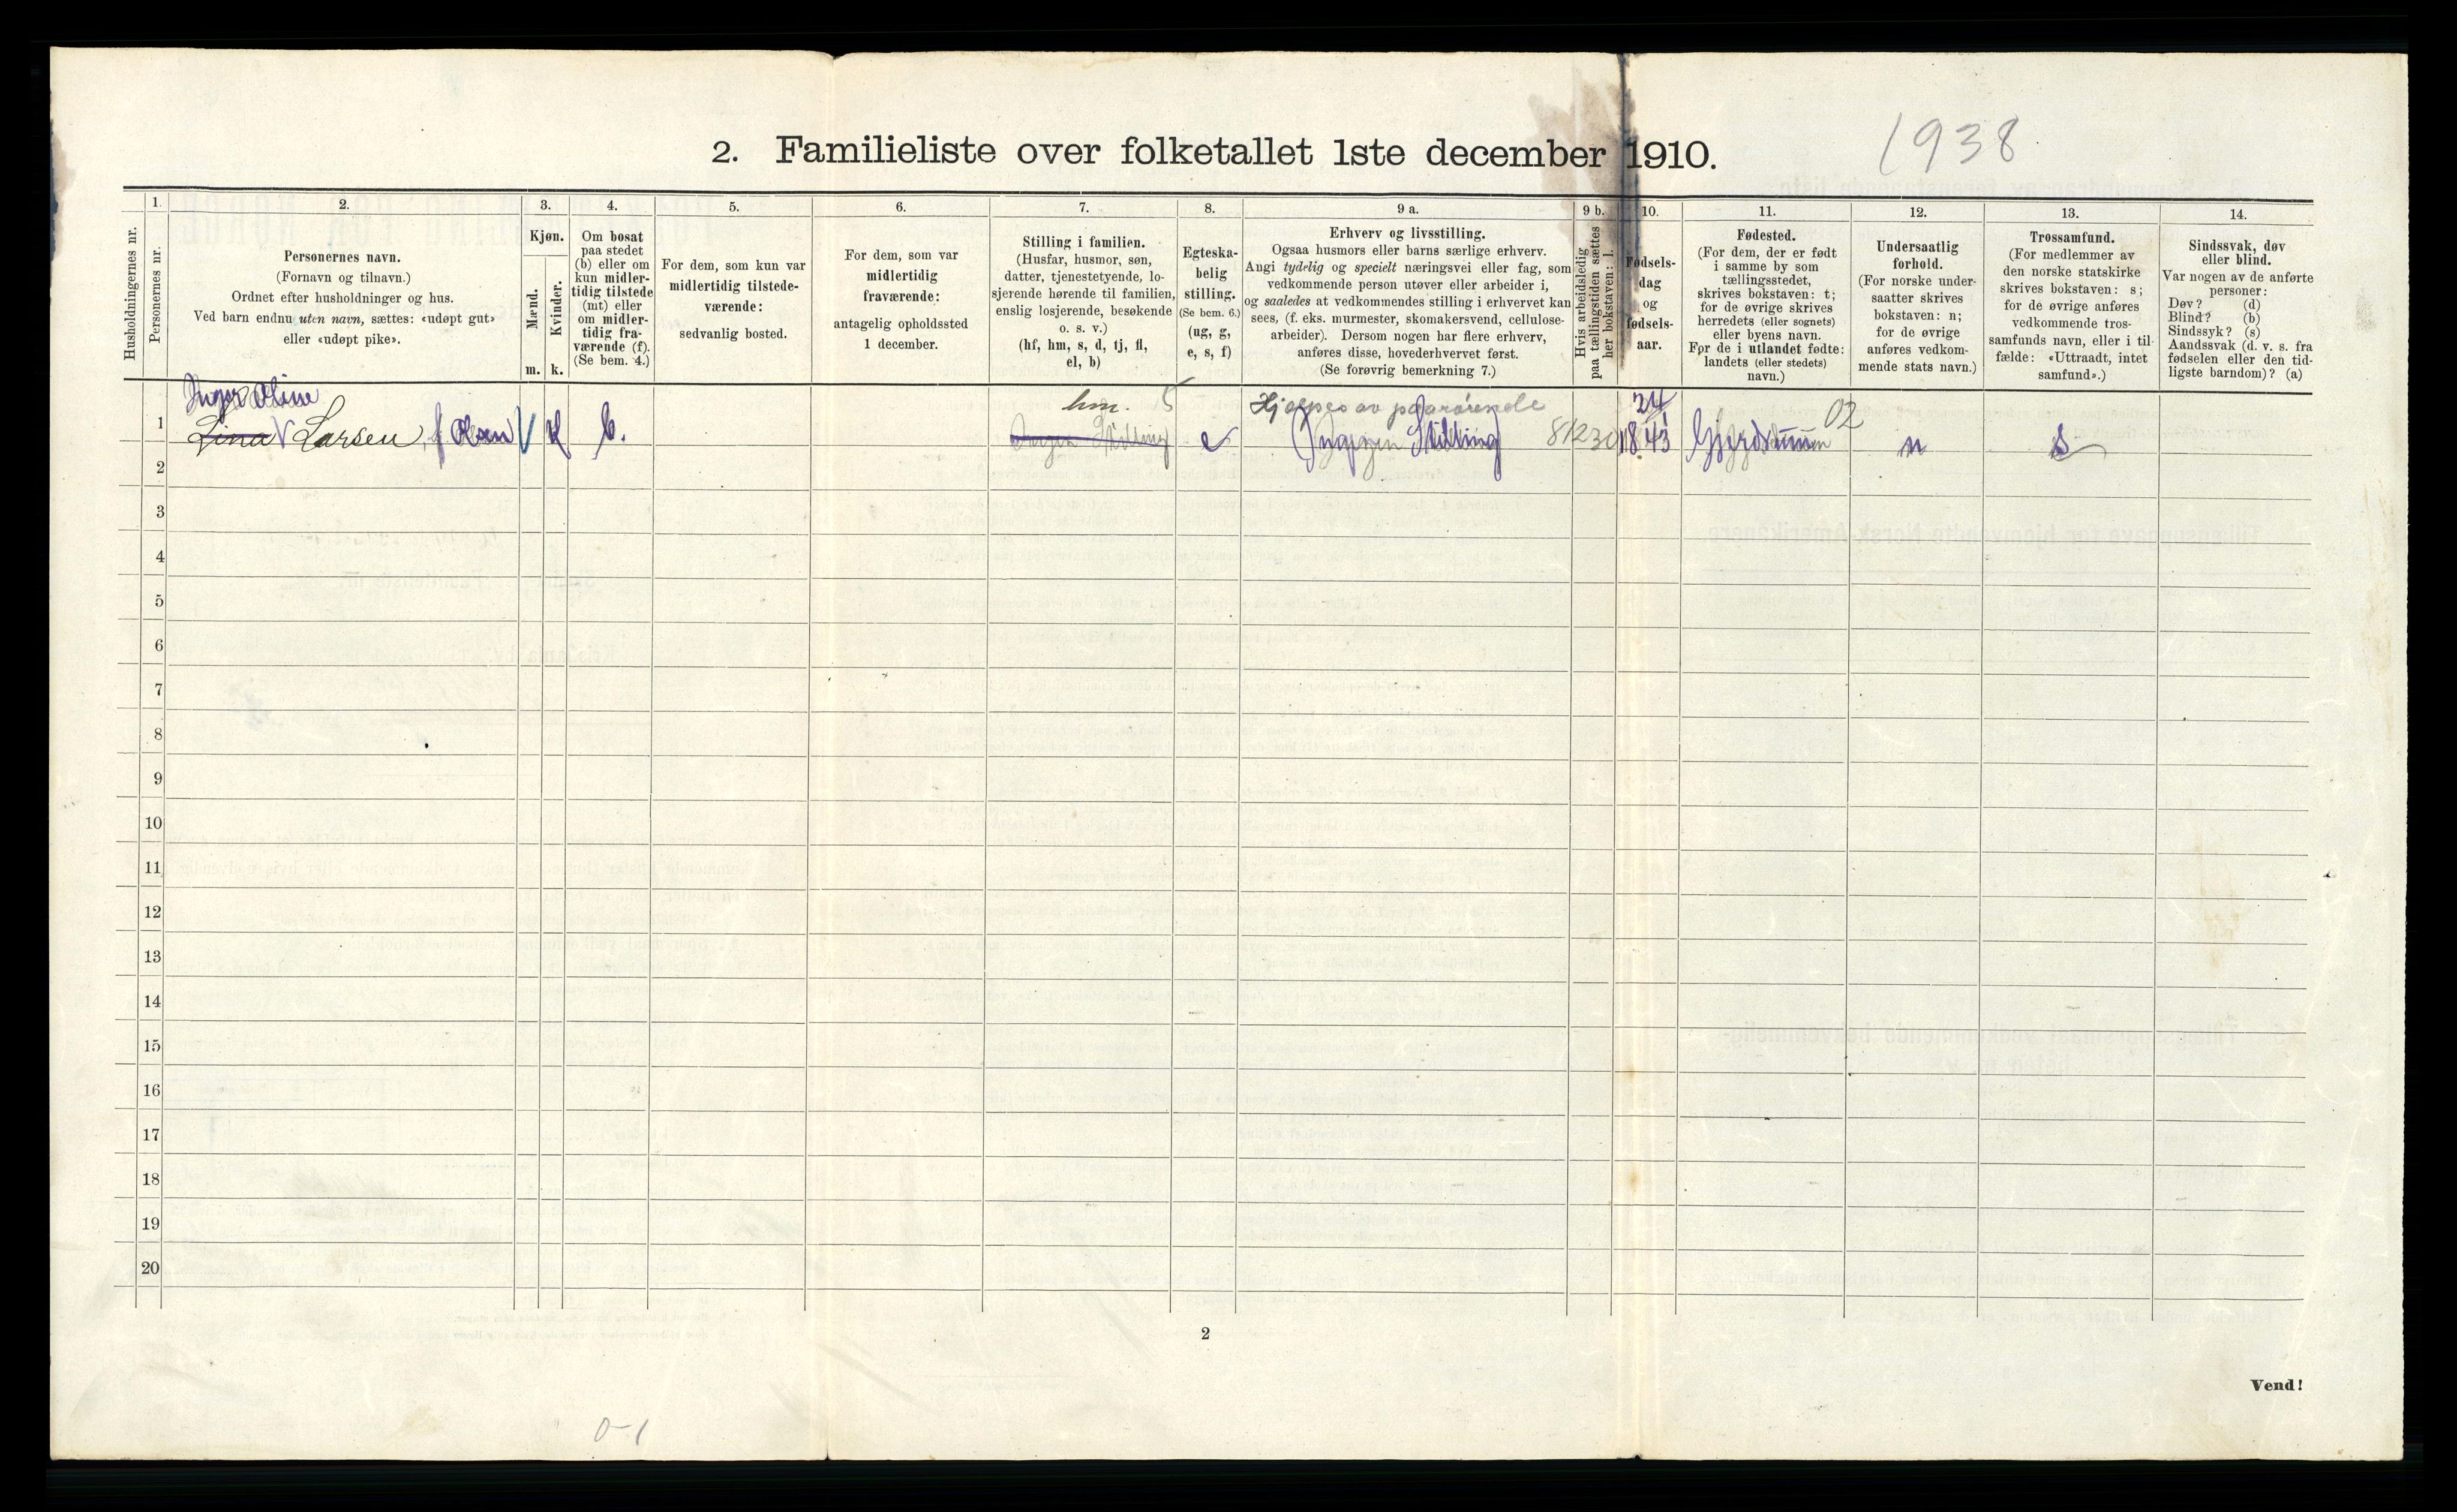 1938
2. Familieliste over folketallet 1ste december 1910.
1. 2. 3. 4. 5. 6. 7. 8. 9 a. 9 b. 10. 11. 12. 13. 14.
Husholdningernes nr.
Personernes nr.
Personernes navn.
(Fornavn og tilnavn.)
Ordnet efter husholdninger og hus.
Ved barn endnu uten navn, sættes: «udøpt gut»
eller «udøpt pike».
Kjøn.
Mænd.
Kvinder.
m. k.
Om bosat
paa stedet
(b) eller om
kun midler-
tidig tilstede
(mt) eller
om midler-
tidig fra-
værende (f).
(Se bem. 4.)
For dem, som kun var
midlertidig tilstede-
værende:
sedvanlig bosted.
For dem, som var
midlertidig
fraværende:
antagelig opholdssted
1 december.
Stilling i familien.
(Husfar, husmor, søn,
datter, tjenestetyende, lo-
sjerende hørende til familien,
enslig losjerende, besøkende
o. s. v.)
(hf, hm, s, d, tj, fl,
el, b)
Egteska-
belig
stilling.
(Se bem. 6.)
(ug, g,
e, s, f)
Erhverv og livsstilling.
Ogsaa husmors eller barns særlige erhverv.
Angi tydelig og specielt næringsvei eller fag, som
vedkommende person utøver eller arbeider i,
og saaledes at vedkommendes stilling i erhvervet kan
sees, (f. eks. murmester, skomakersvend, cellulose-
arbeider). Dersom nogen har flere erhverv,
anføres disse, hovederhvervet først.
(Se forøvrig bemerkning 7.)
Hvis arbeidsledig
paa tællingstiden sættes
her bokstaven: l.
Fødsels-
dag
og
fødsels-
aar.
Fødested.
(For dem, der er født
i samme by som
tællingsstedet,
skrives bokstaven: t;
for de øvrige skrives
herredets (eller sognets)
eller byens navn.
For de i utlandet fødte:
landets (eller stedets)
navn.)
Undersaatlig
forhold.
(For norske under-
saatter skrives
bokstaven: n;
for de øvrige
anføres vedkom-
mende stats navn.)
Trossamfund.
(For medlemmer av
den norske statskirke
skrives bokstaven: s;
for de øvrige anføres
vedkommende tros-
samfunds navn, eller i til-
fælde: «Uttraadt, intet
samfund».)
Sindssvak, døv
eller blind.
Var nogen av de anførte
personer:
Døv? (d)
Blind? (b)
Sindssyk? (s)
Aandssvak (d. v. s. fra
fødselen eller den tid-
ligste barndom)? (a)
Inger Oline hm. 5 Hjælpes av paarørende 02
1 Lina Larsen, f Olsen k b. Ingen Stilling e (Ingen Stilling) 81230 1843 Gjerdrum n s
2
3
4
5
6
7
8
9
10
11
12
13
14
15
16
17
18
19
20
2
Vend!
0-1